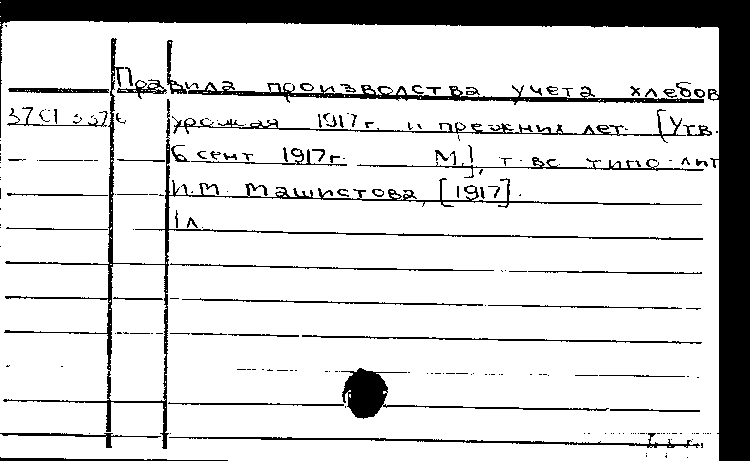 Правила производства учета хлебов
урожая 1917г. и прежних лет. [Утв.
6 сент 1917г. М.], т-во типо-лит
И.М. Машистова, [1917].
1 л